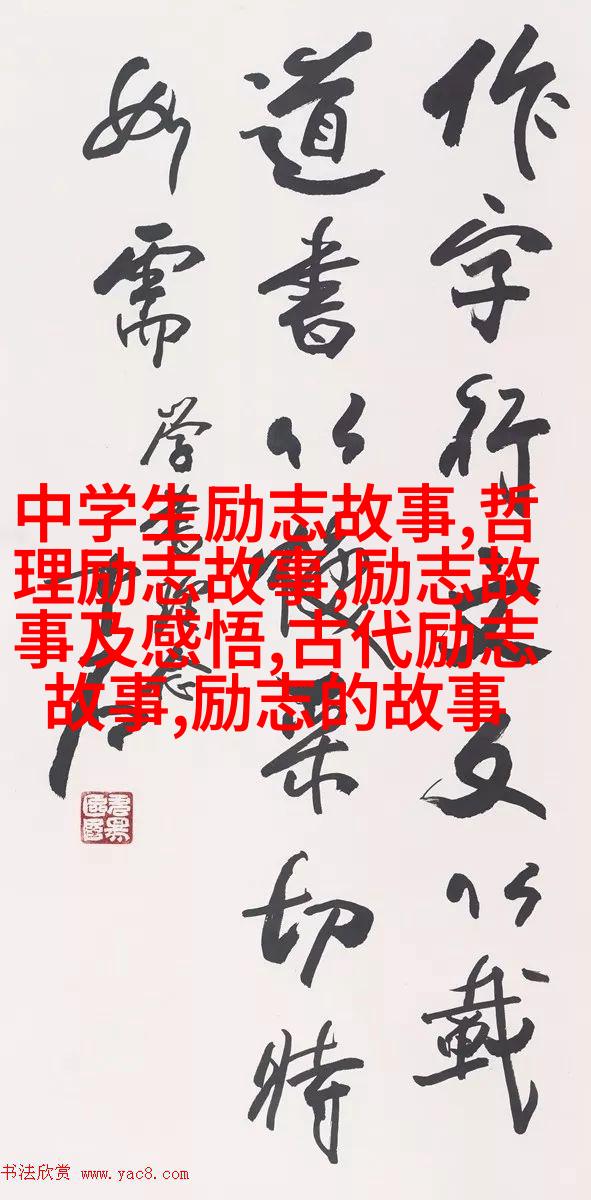 作字行文以載
道書以采切時
如需
中学生励志故事,哲
理励志故事,励志故
事及感悟,古代励志
故事,励志的故事
书法欣赏 www.yac8.com